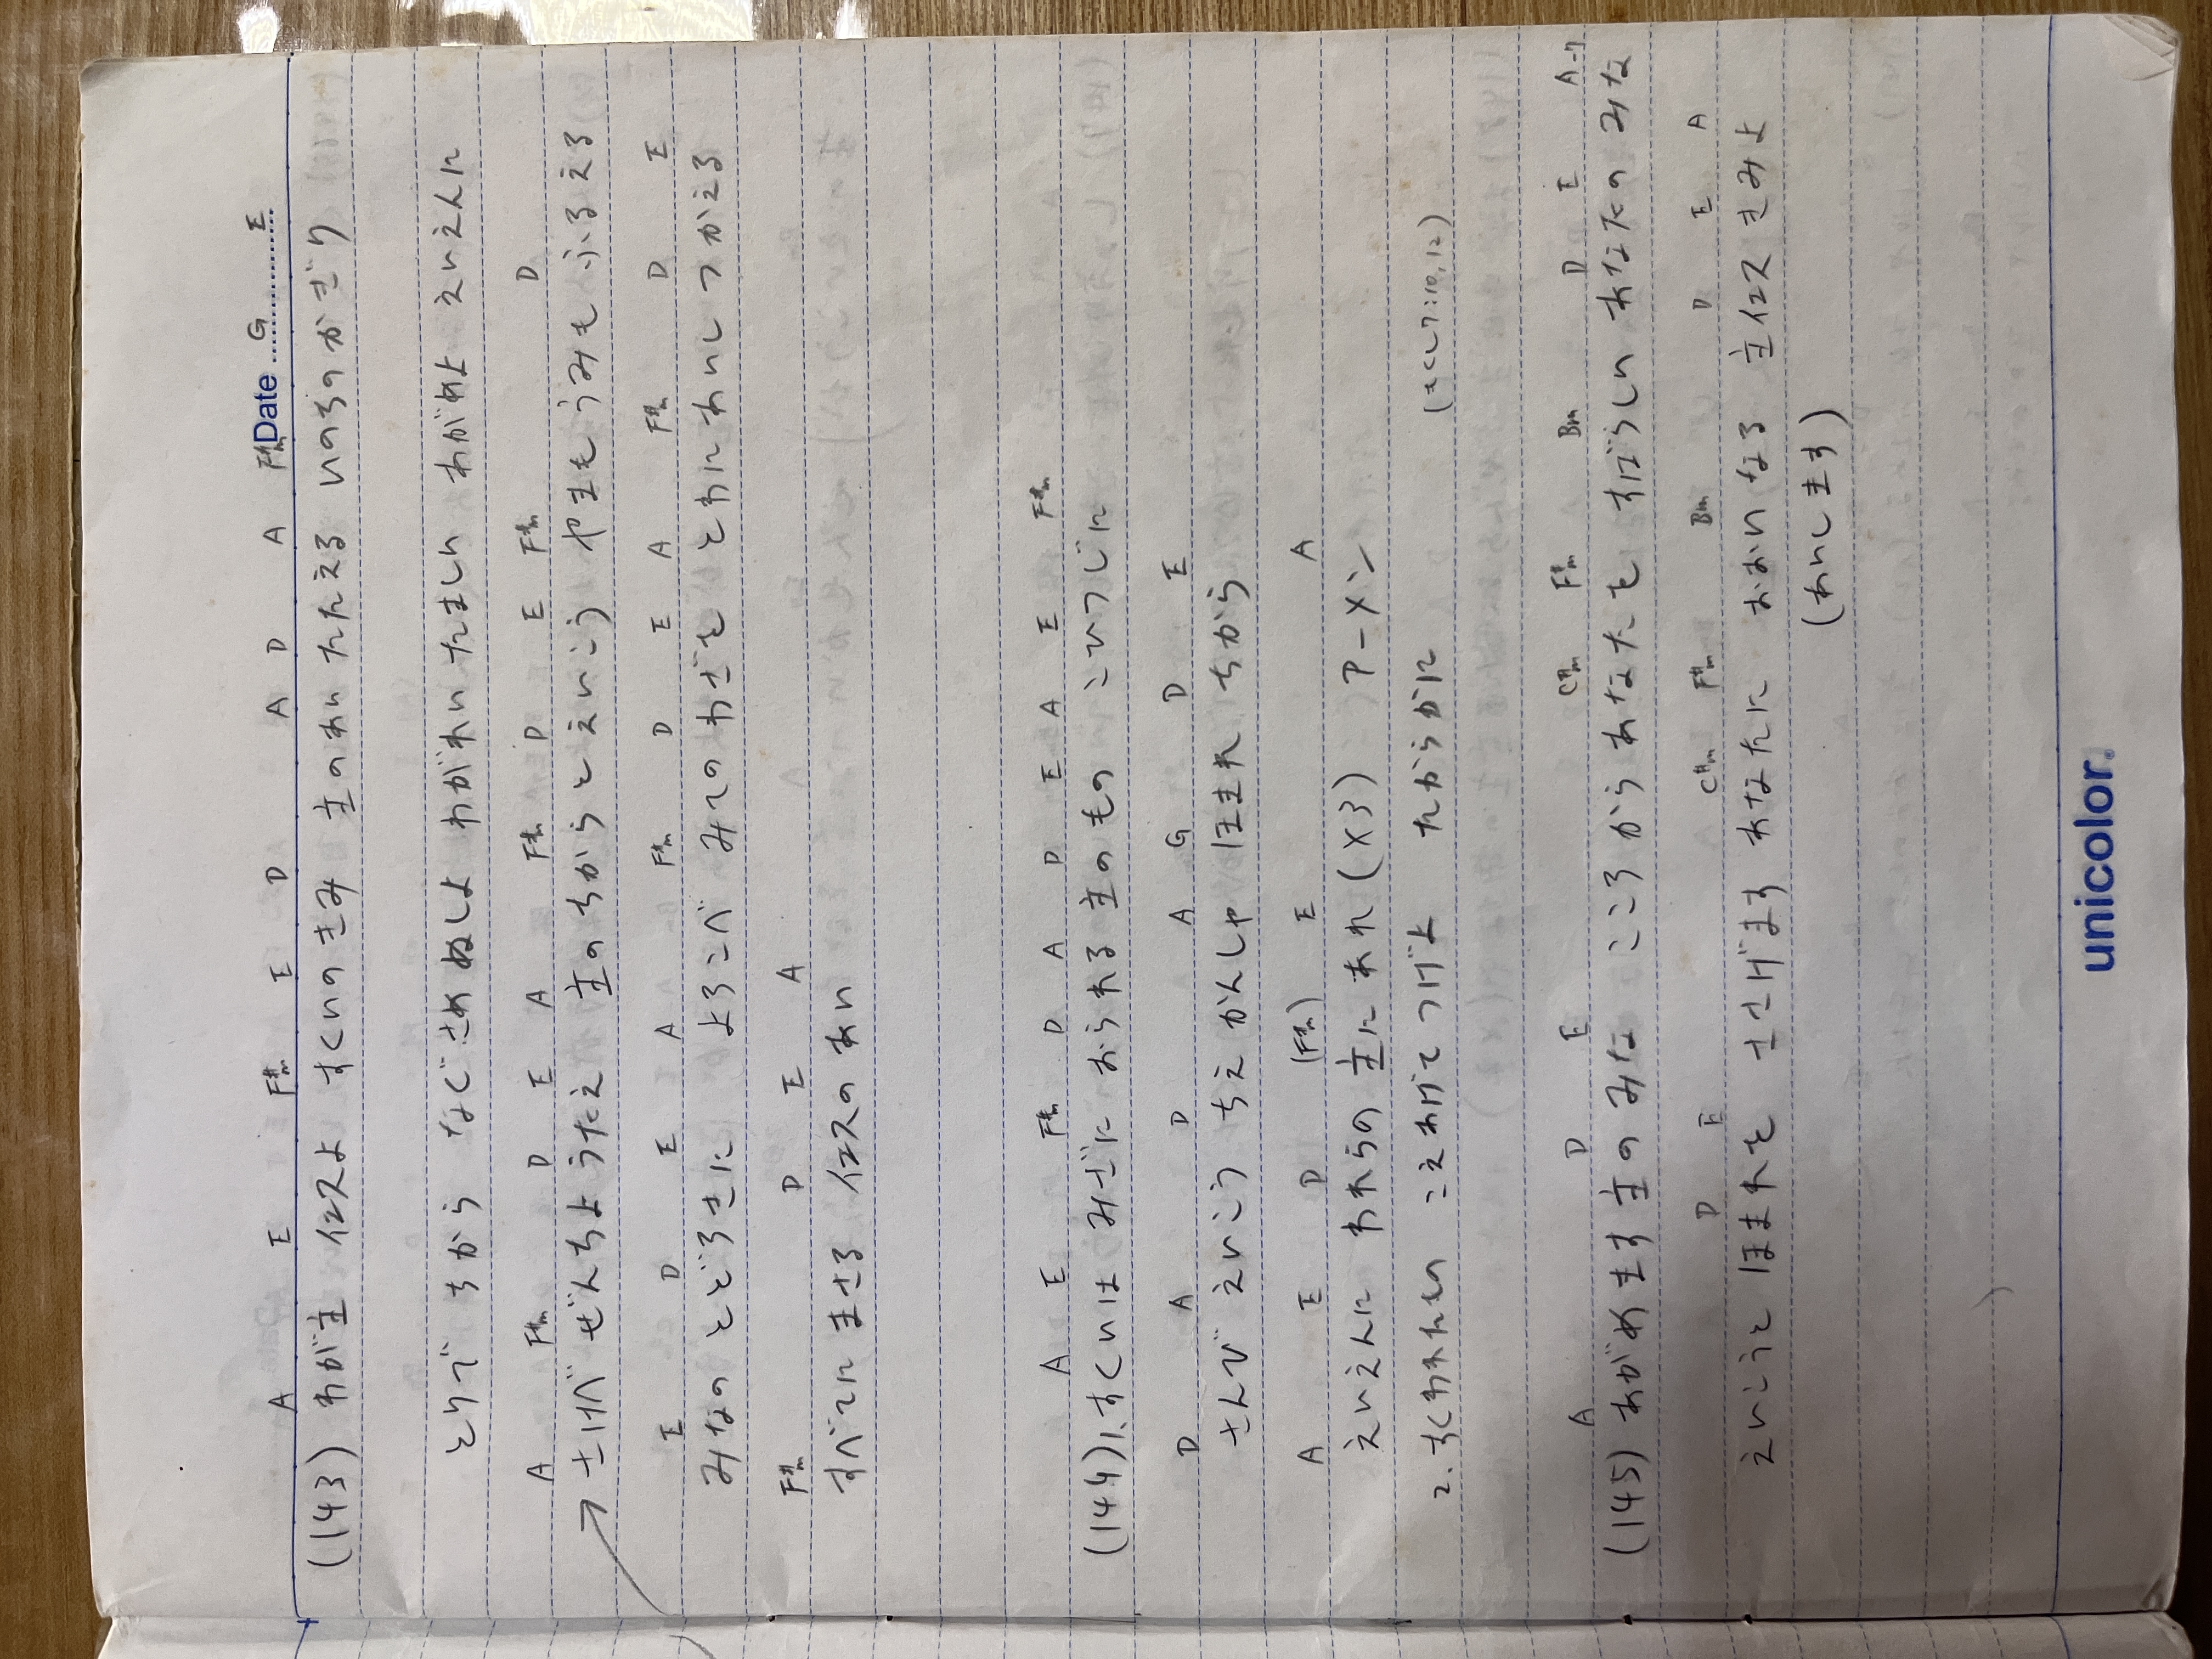 Date
A E F#m E D A D A F#m G E
(143) わが主 イエスよ すくいのきみ 主のあい たたえる いのちのかぎり
とりで ちから なぐさめ ぬしよ わがれい たましい あがめよ えいえんに
A F#m D E A F#m D E F#m D
さけべ ぜんちよ うたえ 主のちからと えいこう やまも うみも ふるえる
E D E A F#m D E A F#m D E
みなの とどろきに よろこべ みての わざを とわに あいし つかえる
F#m D E A
すべてに まさる イエスの あい
A E F#m D A D E A E F#m
(144) 1. すくいは みざに おられる 主のもの こひつじに
D A D A G D E
さんび えいこう ちえ かんしゃ ほまれ ちから
A E D (F#m) E A
えいえんに われらの 主に あれ (×3) アーメン
2. すくわれたい こえあげて つげよ たからかに (もくし7:10,12)
A D E C#m F#m Bm D E A-7
(145) あがめます 主の みな こころから あなたを すばらしい あなたの みな
D E C#m F#m Bm D E A
えいこうと ほまれを ささげます あなたに おおいなる 主イエス きみよ
(あいします)
unicolor.